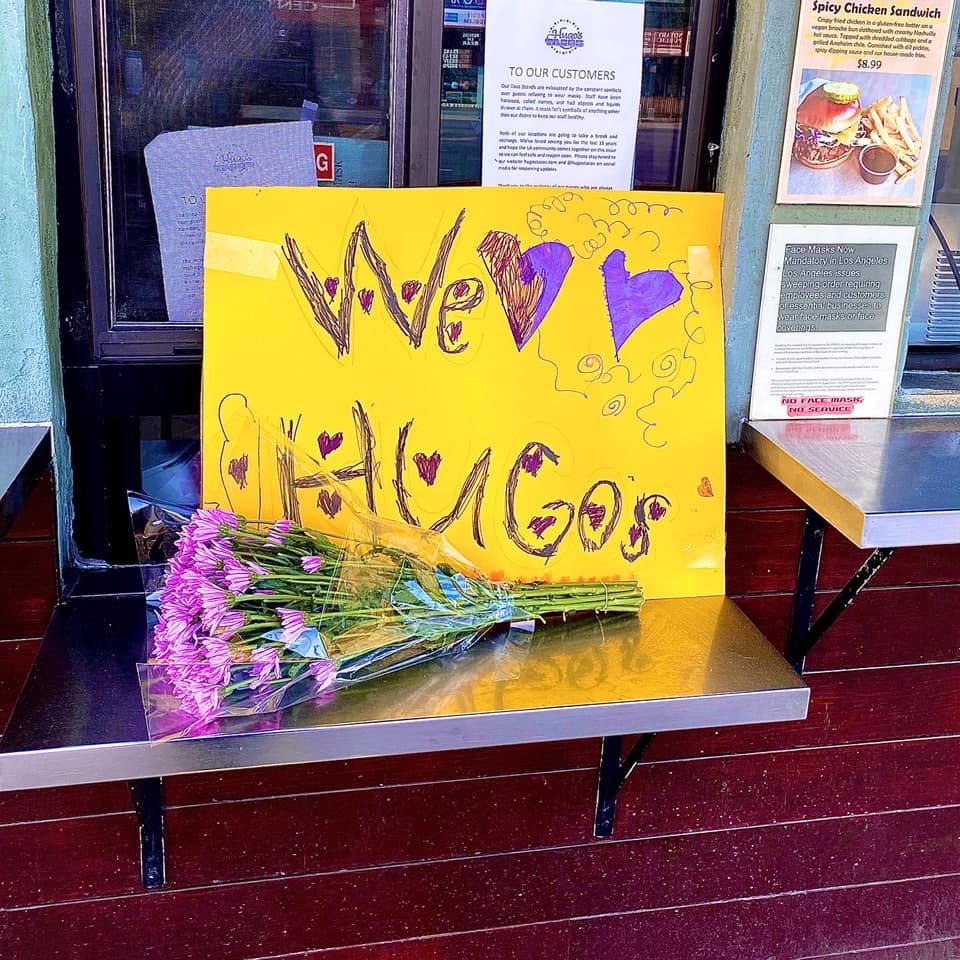 Hugo's
TO OUR CUSTOMERS
Our Taco Stands are exhausted by the constant conflicts
over guests refusing to wear masks. Staff have been
harassed, called names, and had objects and liquids
thrown at them. A mask isn't symbolic of anything other
than our desire to keep our staff healthy.
Both of our locations are going to take a break and
recharge. We've loved serving you for the last 15 years
and hope the LA community comes together on this issue
so we can feel safe and reopen soon. Please stay tuned to
our website hugostacos.com and @hugostacos on social
media for reopening updates.
Thank you to the majority of our guests who are always
TO O
G
We
HUGO's
Spicy Chicken Sandwich
Crispy fried chicken in a gluten-free batter on a
vegan brioche bun slathered with creamy Nashville
hot sauce. Topped with shredded cabbage and a
grilled Anaheim chile. Garnished with dill pickles,
spicy dipping sauce and our house-made fries.
$8.99
Face Masks Now
Mandatory in Los Angeles
Los Angeles issues
sweeping order requiring
employees and customers
of essential businesses to
wear face masks or face
coverings.
NO FACE MASK,
NO SERVICE